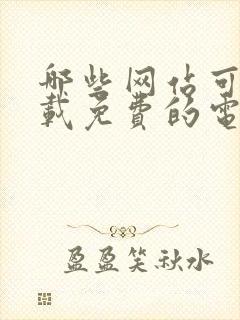 哪些网佔可
载免费的电
盈盈笑秋水